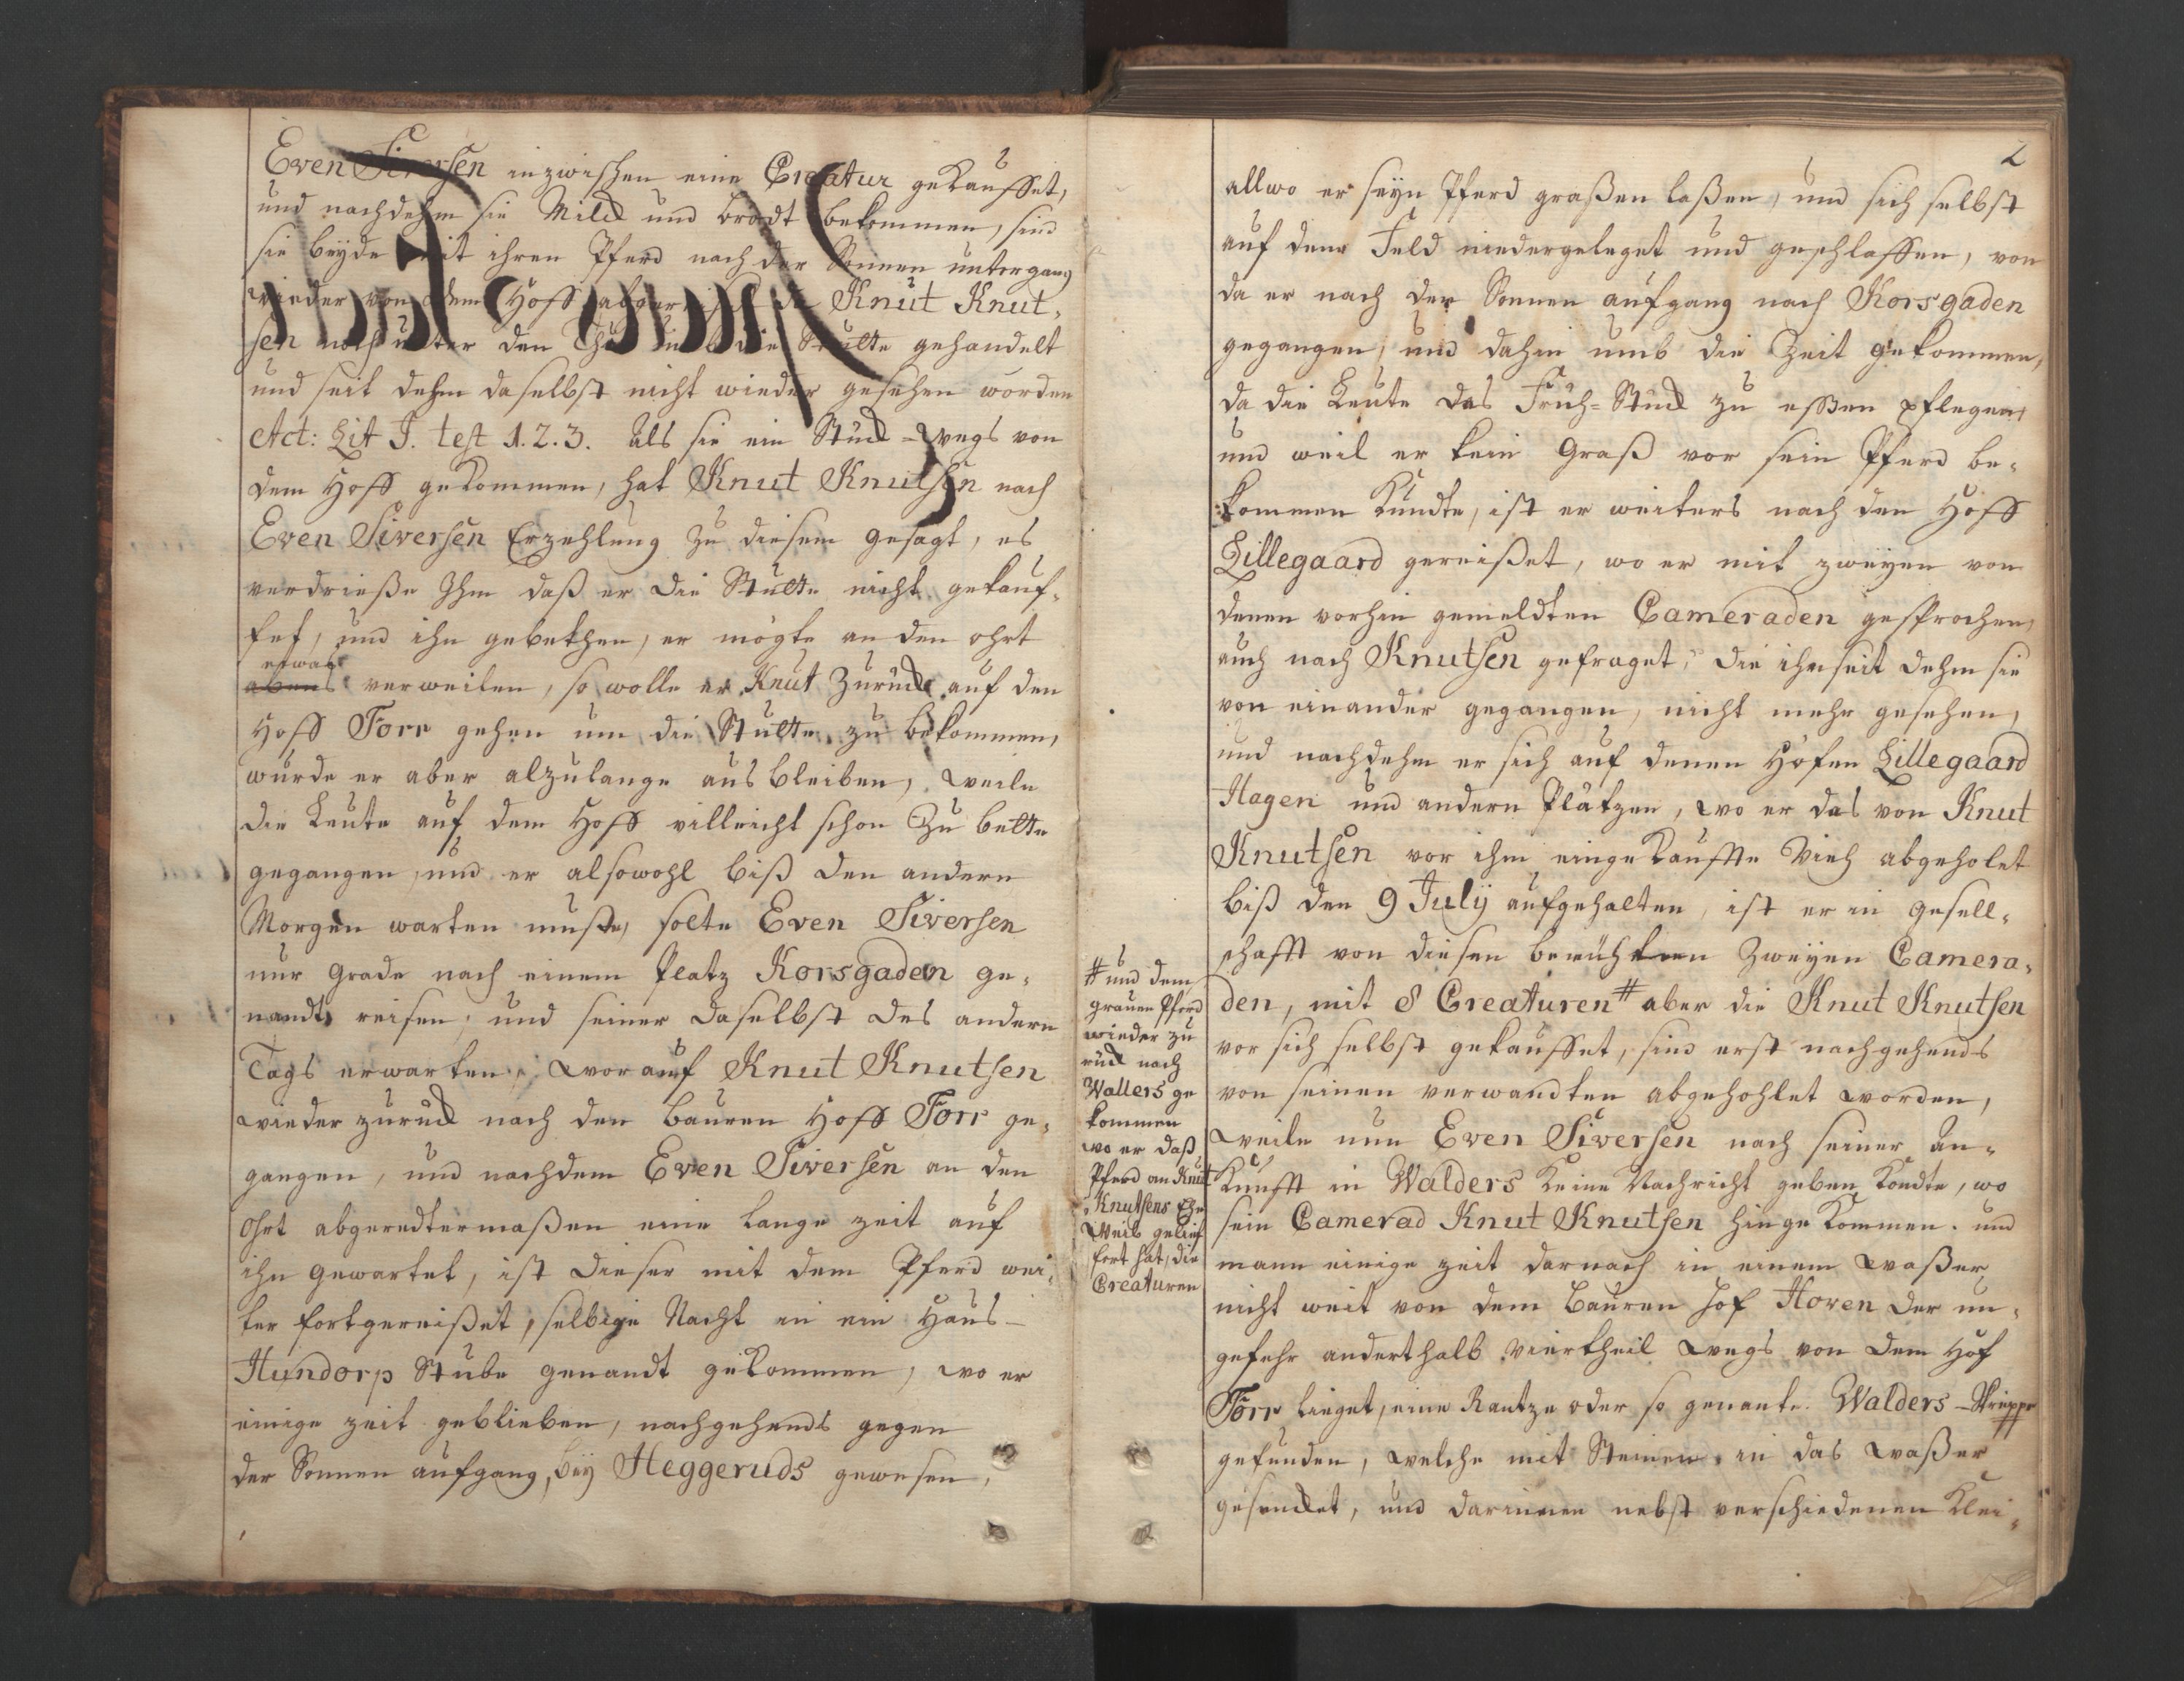 Even Siversen inzwischen eine Creatur gekauffet,
und nachdehm sie Milck und brodt bekommen, sind
sie beyde mit ihren Pferd nach der Sonnen untergang
wieder von dem Hoff Knut Knut-
sen noch unter den die Stutte gehandelt
und seit dehm daselbst nicht wieder gesehen worden
Act: Lit J. test 1. 2. 3. Als sie ein Stück-wegs von
dem Hoff gekommen, hat Knut Knutsen nach
Even Siversen Erzehlung zu diesem gesagt, es
verdrieße Ihm daß er die Stutte nicht gekauf-
fet, und ihn gebethen, er mögte an den ohrt
etwas verweilen, so wolle er Knut Zurück auf den
Hoff Forr gehen um die Stutte zu bekommen,
würde er aber alzulange aus bleiben, weile
die Leute auf dem Hoff villeicht schon Zu bette
gegangen, und er alsowohl biß den andern
Morgen warten muste, solte Even Siversen
nur Grade nach einem Platz Korsgaden ge-
nandt reisen, und seiner daselbst des andern
Tags erwarten, worauf Knut Knutsen
wieder zurück nach den Bauren Hoff Forr ge-
gangen, und nachdem Even Siversen an den
Ohrt abgeredtermaßen eine lange zeit auf
ihn gewartet, ist dieser mit dem Pferd wei-
ter fortgereißet, selbige Nacht in ein Haus-
Hundorp Stube genandt gekommen, wo er
einige zeit geblieben, nachgehends gegen
der Sonnen aufgang, bey Heggeruds gewesen,
2
allwo er seyn Pferd graßen laßen, und sich selbst
auf dem Feld niedergeleget und geschlaffen, von
da er nach der Sonnen aufgang nach Korsgaden
gegangen, und dahin umb die Zeit gekommen,
da die Leute das Früh-Stück zu eßen pflegen,
und weil er kein Graß vor sein Pferd be-
kommen kundte, ist er weiters nach den Hoff
Lillegaard gereißet, wo er mit zweyen von
denen vorhin gemeldten Cameraden gesprochen,
auch nach Knutsen gefraget, die ihn seit dehm sie
von einander gegangen, nicht mehr gesehen,
und nachdehm er sich auf denen Höfen Lillegaard
Hagen und andern Plätzen, wo er das von Knut
Knutsen vor ihm eingekauffte Vieh abgeholet
biß den 9 July aufgehalten, ist er in gesell-
schafft von diesen berührten Zweyen Camera-
den, mit 8 Creaturen # aber die Knut Knutsen
vor sich selbst gekauffet, sind erst nachgehends
von seinen verwandten abgehohlet worden,
weile nun Even Siversen nach seiner an-
kunfft in Walders keine Nachricht geben kondte, wo
sein Camerad Knut Knutsen hingekommen. und
mann einige zeit darnach in einem waßer
nicht weit von dem Bauren Hof Hoven der un-
gefehr anderthalb viertheil wegs von dem Hof
Forr lieget, eine Rantze oder so genante Walders-Skreppe
gefunden, welche mit Steinen in das waßer
gesencket, und darinnen nebst verschiedenen Klei-
# und dem
grauen Pferd
wieder zu
rück nach
Wallers ge
kommen
wo er daß
Pferd an Knut
Knutsens Ehe
Weib gelief
fert hat, die
Creaturen